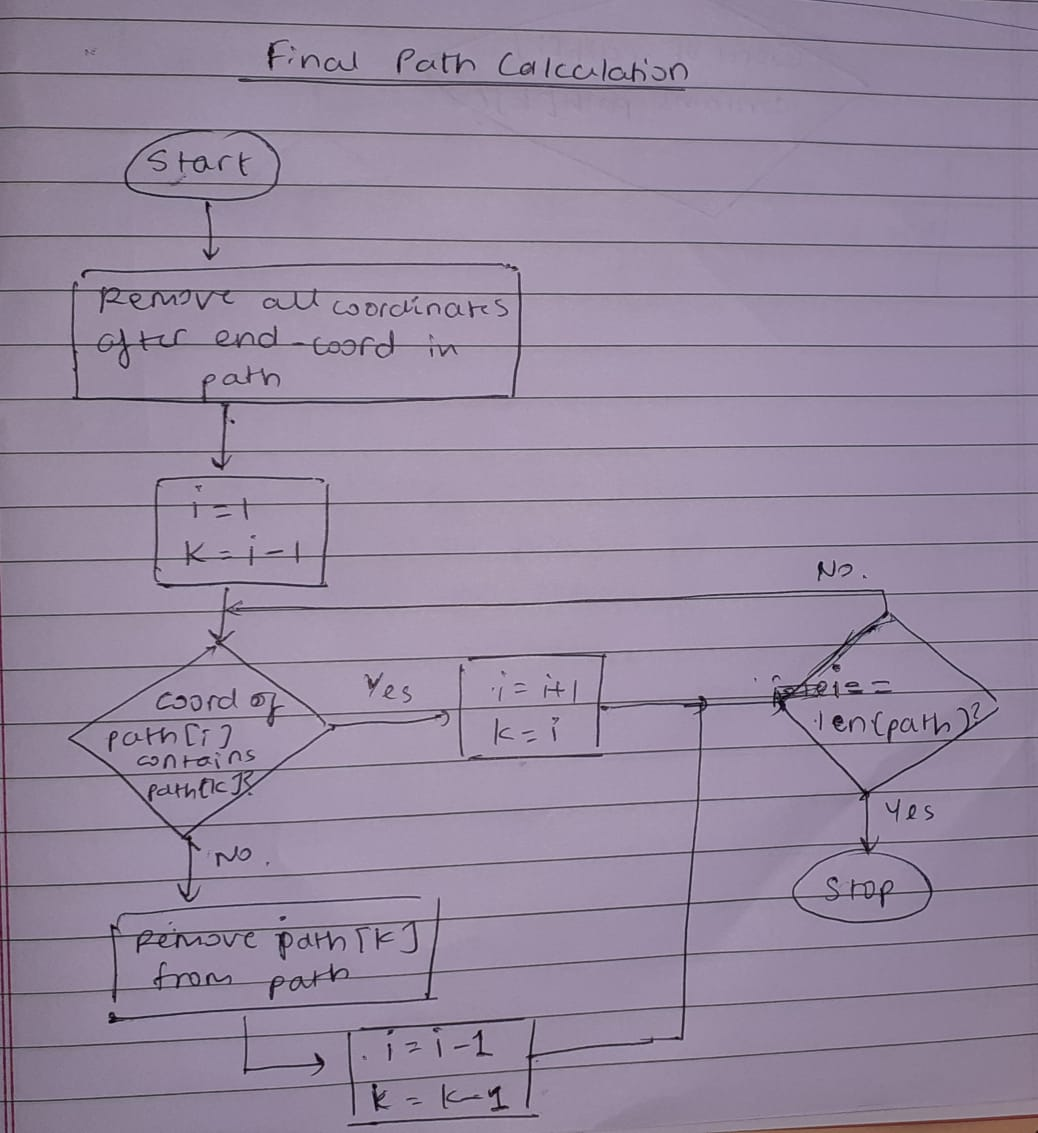 Final Path Calculation
Start
Remove all coordinates
after end-coord in
path
i=1
k=i-1
No.
coord of
path[i]
contains
path[k]?
Yes
i = i+1
k = i
i==
len(path)?
Yes
Stop
No.
Remove path[k]
from path
i=i-1
k = k-1